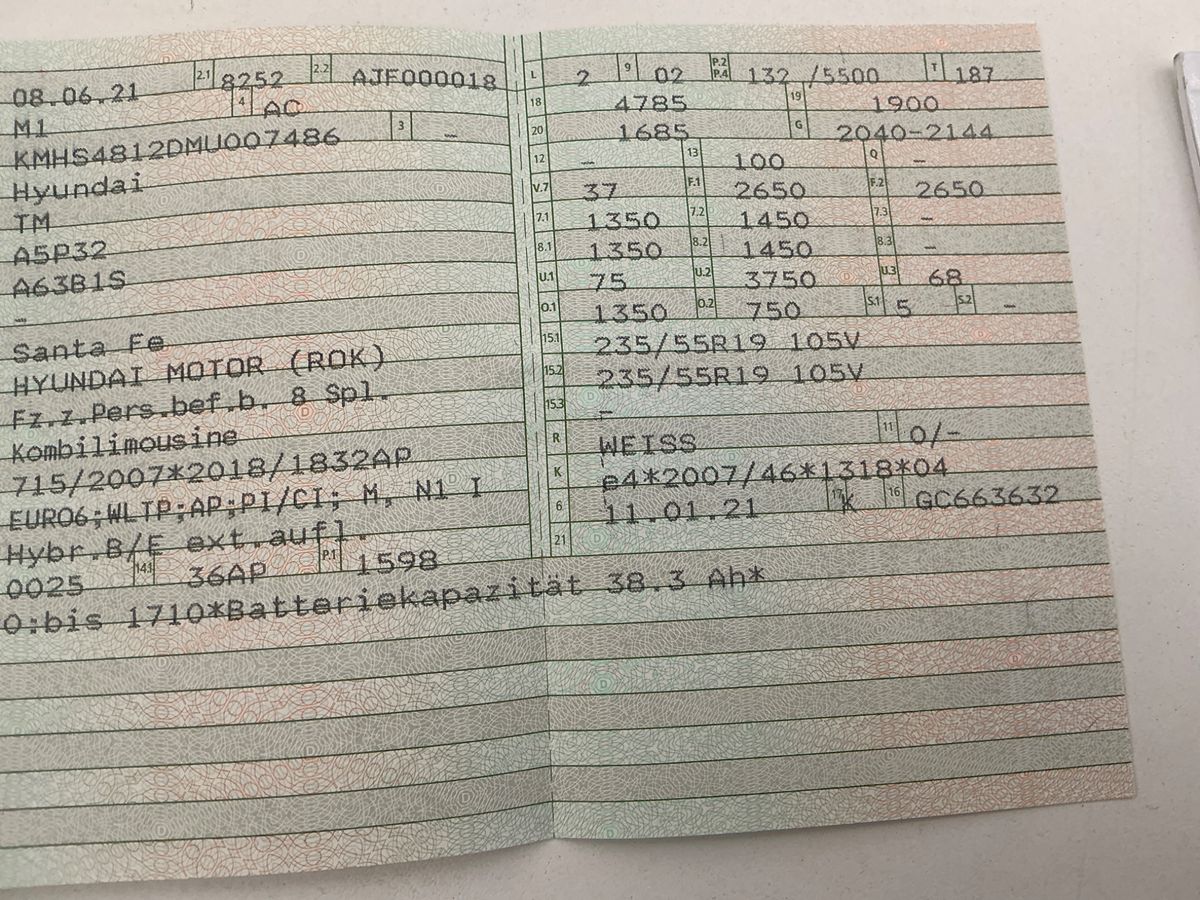 08.06.21 2.1 8252 2.2 AJF000018
M1 4 AC
KMHS4812DMU007486 3 –
Hyundai
TM
A5P32
A63B1S
–
Santa Fe
HYUNDAI MOTOR (ROK)
Fz.z.Pers.bef.b. 8 Spl.
Kombilimousine
715/2007*2018/1832AP
EURO6;WLTP;AP;PI/CI; M, N1 I
Hybr.B/E ext.aufl.
0025 14.1 36AP P.1 1598
O:bis 1710*Batteriekapazität 38.3 Ah*
L 2 9 02 P.2 P.4 132 /5500 T 187
18 4785 19 1900
20 1685 G 2040-2144
12 – 13 100 Q –
V.7 37 F.1 2650 F.2 2650
7.1 1350 7.2 1450 7.3 –
8.1 1350 8.2 1450 8.3 –
U.1 75 U.2 3750 U.3 68
O.1 1350 O.2 750 S.1 5 S.2 –
15.1 235/55R19 105V
15.2 235/55R19 105V
15.3 –
R WEISS 11 0/–
K e4*2007/46*1318*04
6 11.01.21 17 K 16 GC663632
21